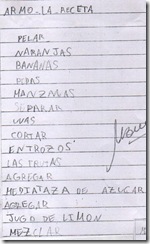 ARMO LA RECETA
PELAR
NARANJAS
BANANAS
PERAS
MANZANAS
SEPARAR
UVAS
CORTAR
EN TROZOS
LAS FRUTAS
AGREGAR
MEDIA TAZA DE AZUCAR
AGREGAR
JUGO DE LIMON
MEZCLAR